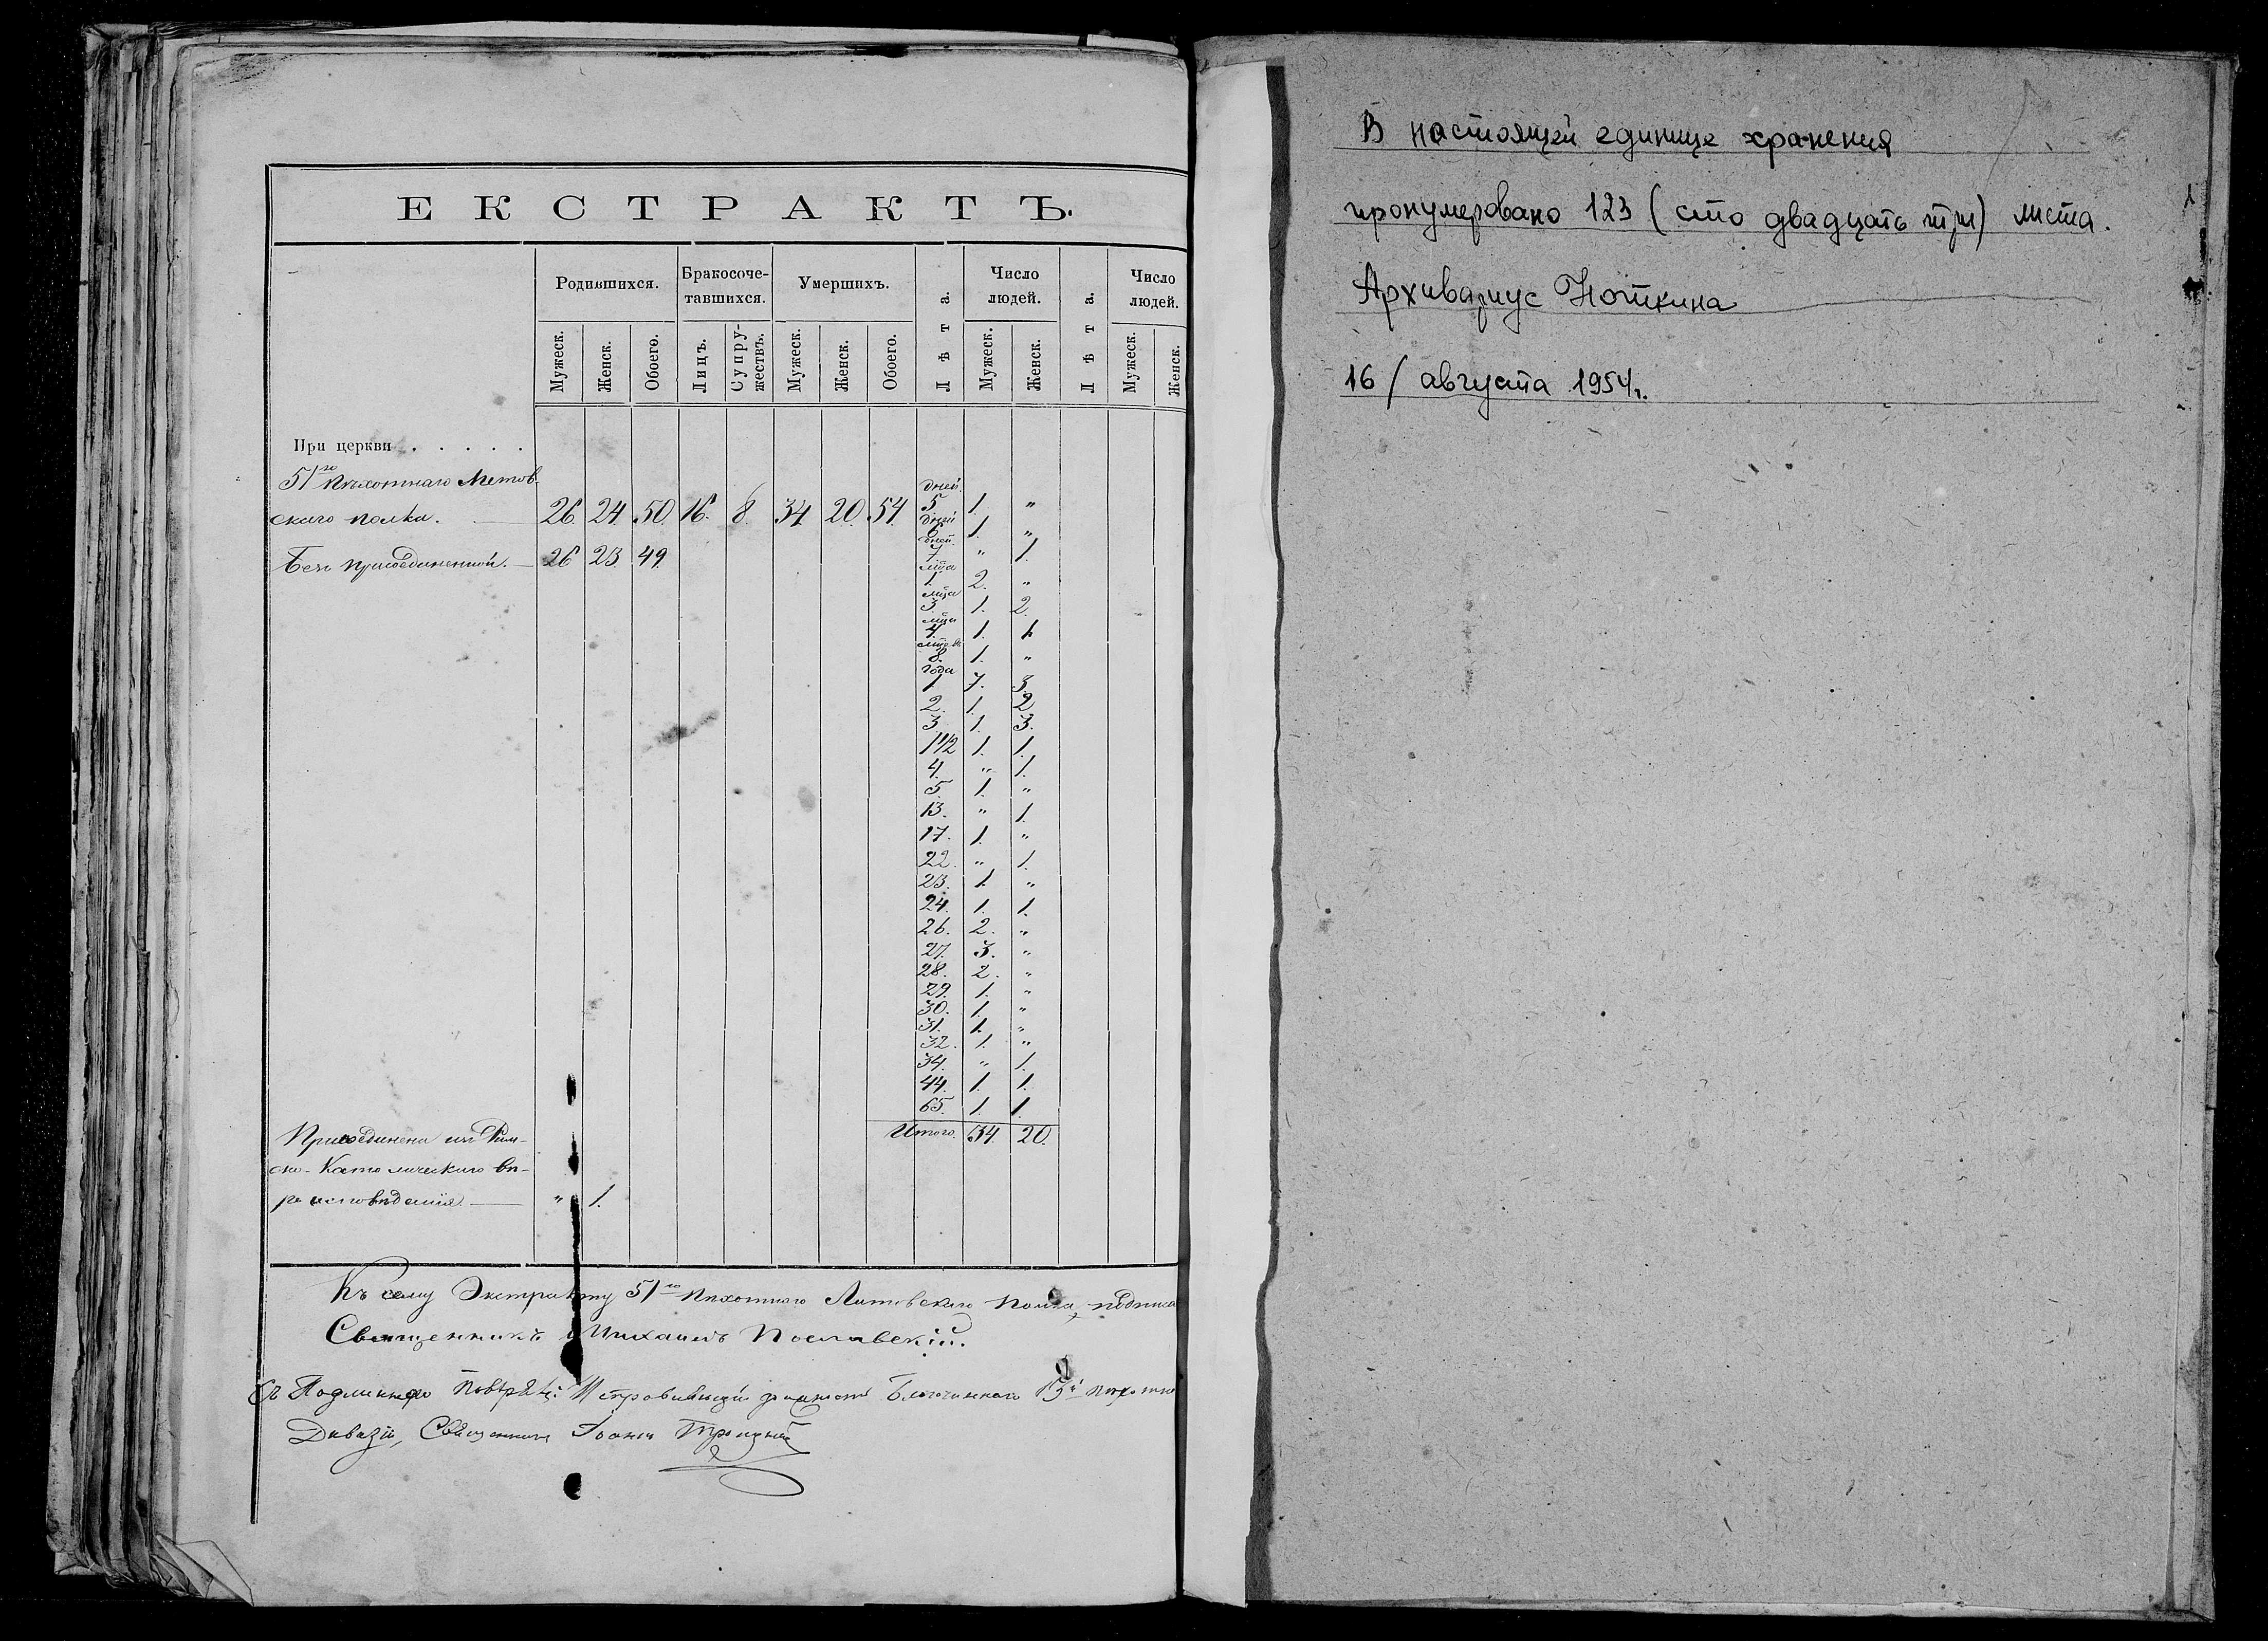 ЕКСТРАКТЪ.
Родившихся. Бракосоче-тавшихся. Умершихъ. Лѣта. Число людей. Лѣта. Число людей.
Мужеск. Женск. Обоего. Лицъ. Супру-жествъ. Мужеск. Женск. Обоего. Мужеск. Женск. Мужеск. Женск.
При церкви . . . . .
51го Пѣхотнаго Литов-
скаго полка. — 26. 24. 50. 16. 8. 34 20. 54.
Безъ присоединенной. — 26 23. 49.
дней 5. 1. "
дней 6. 1. "
дней 7. " 1.
мца 1. 2. "
мца 3. 1. 2.
мца 4. 1. 1.
8. 1. "
года 1 7. 3.
2. 1. 2
3. 1. 3.
1 1/2 1. 1.
4. " 1.
5. 1. "
13. " 1.
17. 1. "
22. " 1.
23. 1. "
24. 1. 1.
26. 2. "
27. 3. "
28. 2. "
29. 1. "
30. 1. "
31. 1. "
32. 1. "
34. " 1.
44. 1. 1.
65. 1. 1.
Итого. 34. 20.
Присоединена изъ Рим-
ско-Католическаго вѣ-
роисповѣданія. — " 1.
Къ сему Экстракту 51го Пѣхотнаго Литовскаго полка,
Священникъ Михаилъ Пославскій.
Съ Подлиннымъ Благочиннаго 13й
Дивизіи, Священникъ Іоаннъ Троицкій
В настоящей единице хранения
пронумеровано 123 (сто двадцать три) листа.
Архивариус Ноткина
16/ августа 1954г.